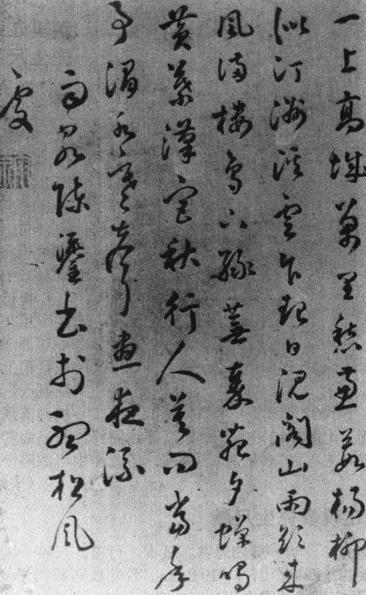 一上高城萬里愁蒹葭楊柳
似汀洲溪雲乍起日沉閣山雨欲來
風滿樓鳥下綠蕪秦苑夕蟬鳴
黃葉漢宮秋行人莫問當年
事渭水寒聲晝夜流
雨泉陳鎏書於聽松風
處